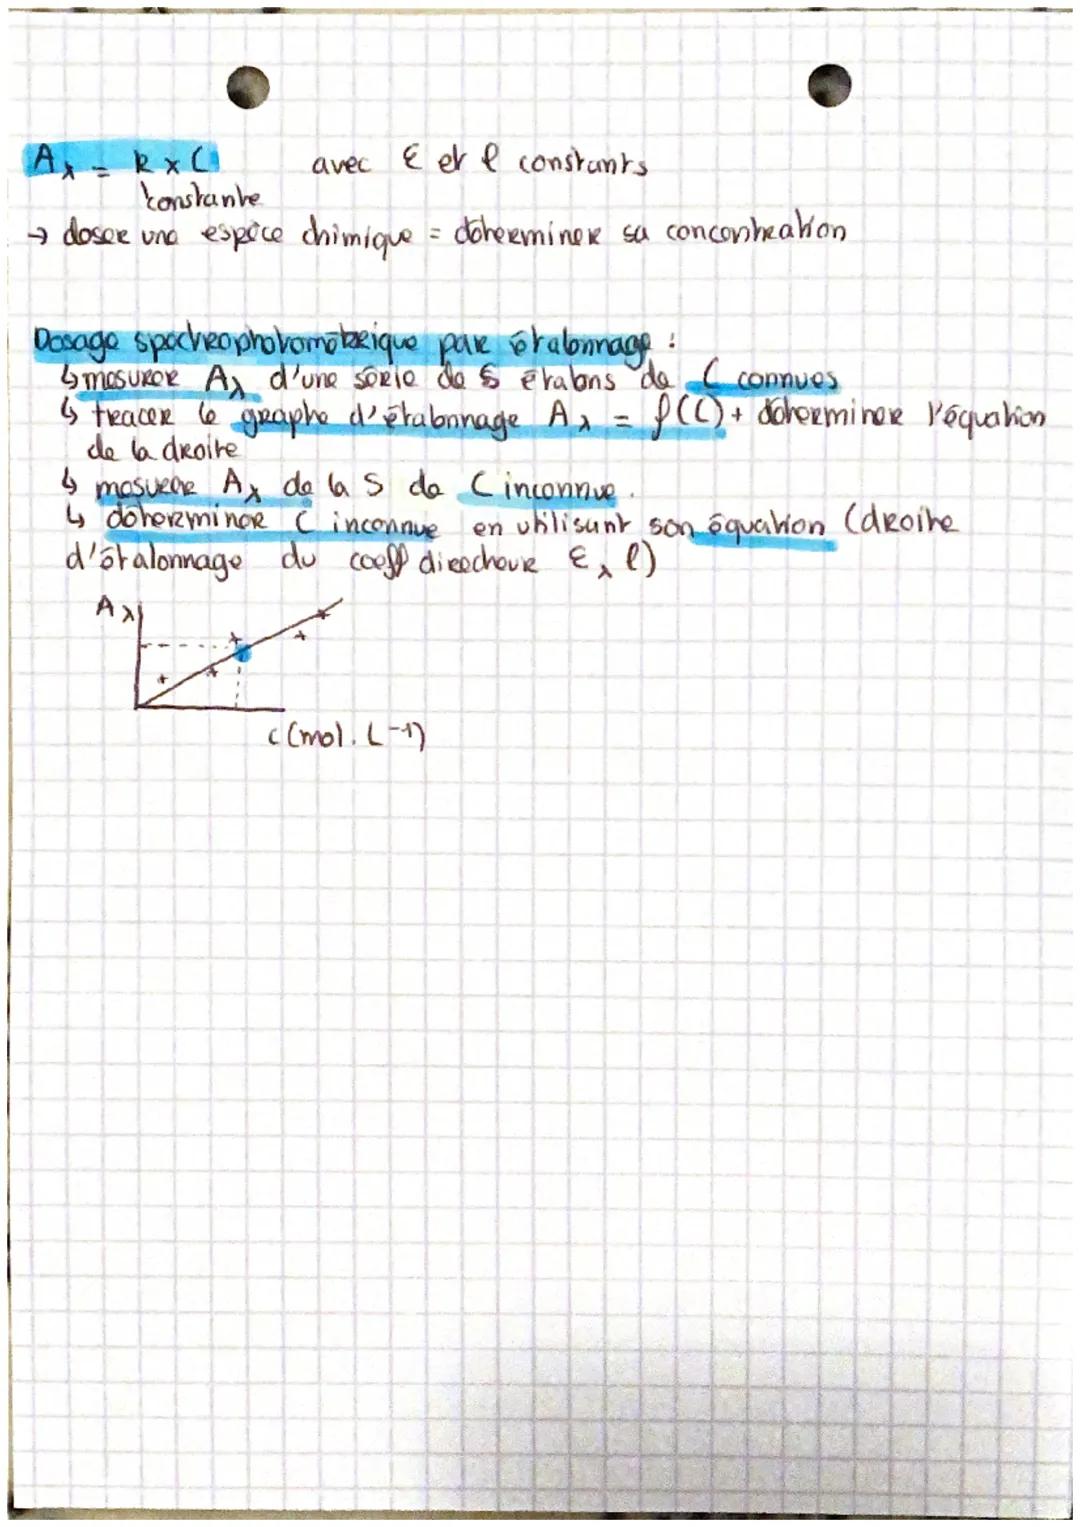 Aλ = k x C avec ε et l constants
constante
→ doser une espèce chimique = déterminer sa concentration
Dosage spectrophotométrique par étalonnage :
↳ mesurer Aλ d'une série de S étalons de C connues
↳ tracer le graphe d'étalonnage Aλ = f(C) + déterminer l'équation
de la droite
↳ mesurer Aλ de la S de C inconnue.
↳ déterminer C inconnue en utilisant son équation (droite
d'étalonnage du coeff directeur ελ l)
Aλ
c (mol. L-1)